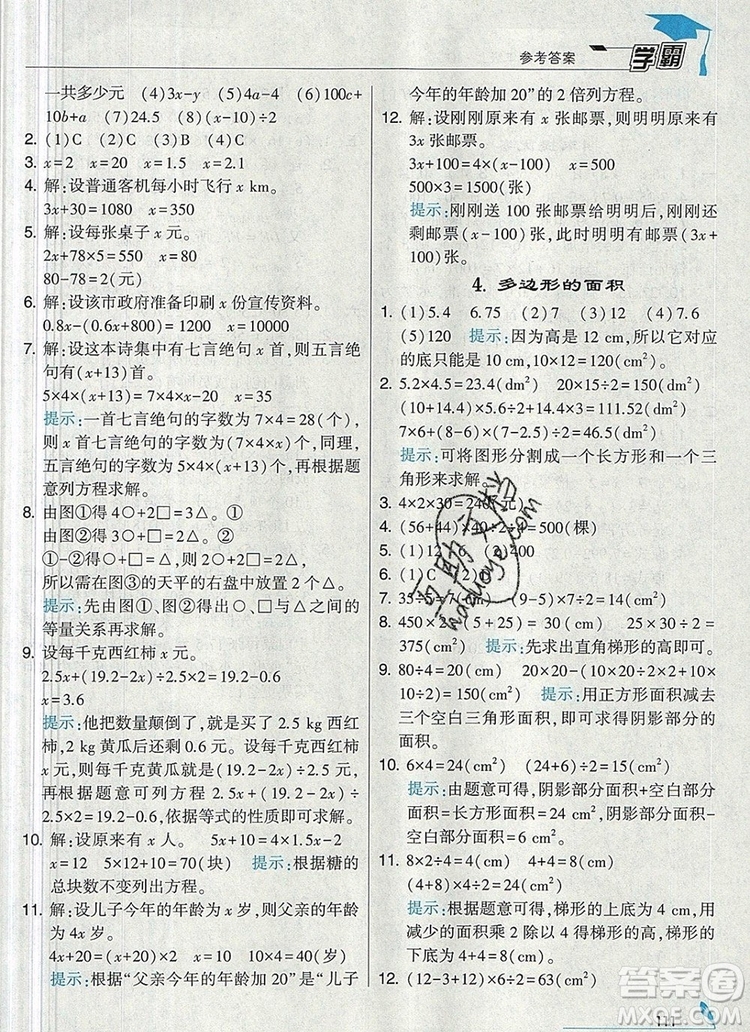 参考答案
学霸
一共多少元 (4)3x-y (5)4a-4 (6)100c+
10b+a (7)24.5 (8)(x-10)÷2
2. (1)C (2)C (3)C (4)B
3. x=2 x=20 x=1.5 x=2.1
4. 解:设普通客机每小时飞行 x km。
3x+30=1080 x=350
5. 解:设每张桌子 x 元。
2x+78×5=550 x=80
80-78=2(元)
6. 解:设该市政府准备印刷 x 份宣传资料。
0.8x-(0.6x+800)=1200 x=10000
7. 解:设这本诗集中有七言绝句 x 首,则五言绝句
有(x+13)首。
5×4×(x+13)=7×4×x-20 x=35
提示:一首七言绝句的字数为 7×4=28(个),
则 x 首七言绝句的字数为(7×4×x)个,同理,
五言绝句的字数为 5×4×(x+13)个,再根据题
意列方程求解。
8. 由图①得 4○+□=5△。①
由图②得 3○+□=4△。②
①-②得○=△,则 2○+□=3△,
所以需在图③的天平的右盘中放置 2 个○。
提示:先由图①、图②得出○、□与△之间的
等量关系再求解。
9. 设每千克西红柿 x 元。
2.5x+(19.2-2x)÷2.5×2=19.2-0.6
x=3.6
提示:他把数量颠倒了,就是买了 2.5 kg 西红
柿,2 kg 黄瓜后还剩 0.6 元。设每千克西红柿
x 元,则每千克黄瓜(19.2-2x)÷2.5=
(元),再根据题意可列方程 2.5x+(19.2-2x)÷
2.5×2=19.2-0.6,依据等式的性质即可求解。
10. 解:设原来有 x 人。 5x+10=4×1.5x-2
x=12 5×12+10=70(块) 提示:根据糖的
总块数不变列出方程。
11. 解:设儿子今年的年龄为 x 岁,则父亲的年龄
为 4x 岁。
4x+20=(x+20)×2 x=10 4x=40(岁)
提示:根据“父亲今年的年龄加 20”是“儿子
今年的年龄加 20”的 2 倍列方程。
12. 解:设刚刚原来有 x 张邮票,则明明原来有
3x 张邮票。
3x+100=4×(x-100) x=500
500×3=1500(张)
提示:刚刚送 100 张邮票给明明后,刚刚还
剩邮票(x-100)张,此时明明有邮票(3x+
100)张。
4. 多边形的面积
1. (1)5.4 6.75 (2)7 (3)12 (4)7.6
(5)120 提示:因为高是 12 cm,所以它对应
的底只能是 10 cm,10×12=120(cm²)。
2. 5.2×4.5=23.4(dm²) 20×10=200(dm²)
(10+14.4)×5.6÷2+14.4×3=111.52(dm²)
7×6+(8-6)×(7-2.5)÷2=46.5(dm²)
提示:可将图形分割成一个长方形和一个三
角形来求解。
3. 4×2×30=240(
4. (56+44)×40÷2÷4=500(棵)
5. (1)12 (2)400
6. (1)C (2)
7. 35÷5=7(cm) (9-5)×7÷2=14(cm²)
8. 450×2÷(15+25)=30(cm)
30×20÷2=300(cm²) 提示:先求出直角梯形的高即可。
9. 80÷4=20(cm) 20×20-(20×10÷2)-
10×10÷2=150(cm²) 提示:用正方形面积减去
三个空白三角形面积,即可求得阴影部分的
面积。
10. 6×4=24(cm²) (24+6)÷2=15(cm²)
提示:由题意可得,阴影部分面积+空白部分面积
=长方形面积=24 cm²,阴影部分面积-
空白部分面积=6 cm²。
11. 8×2÷4=4(cm) 4+4=8(cm)
(4+8)×4÷2=24(cm²)
提示:根据题意可得,梯形的上底为 4 cm,用
减少的面积乘 2 除以 4 可得出 4 cm,梯形的
下底为 4+4=8(cm)。
12. (12-3+12)×6÷2=63(cm²)
111
haduoye.com
答案圈
MXQE.COM